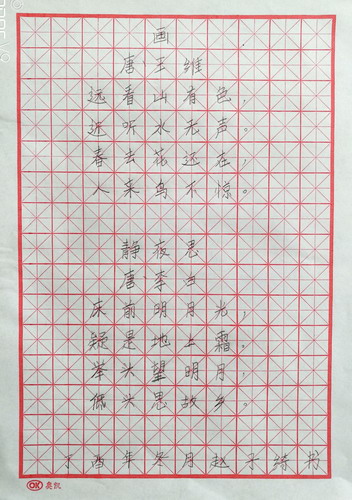 画
唐·王维
远看山有色，
近听水无声。
春去花还在，
人来鸟不惊。
静夜思
唐·李白
床前明月光，
疑是地上霜。
举头望明月，
低头思故乡。
丁酉年冬月赵子绮书
OK 奥凯